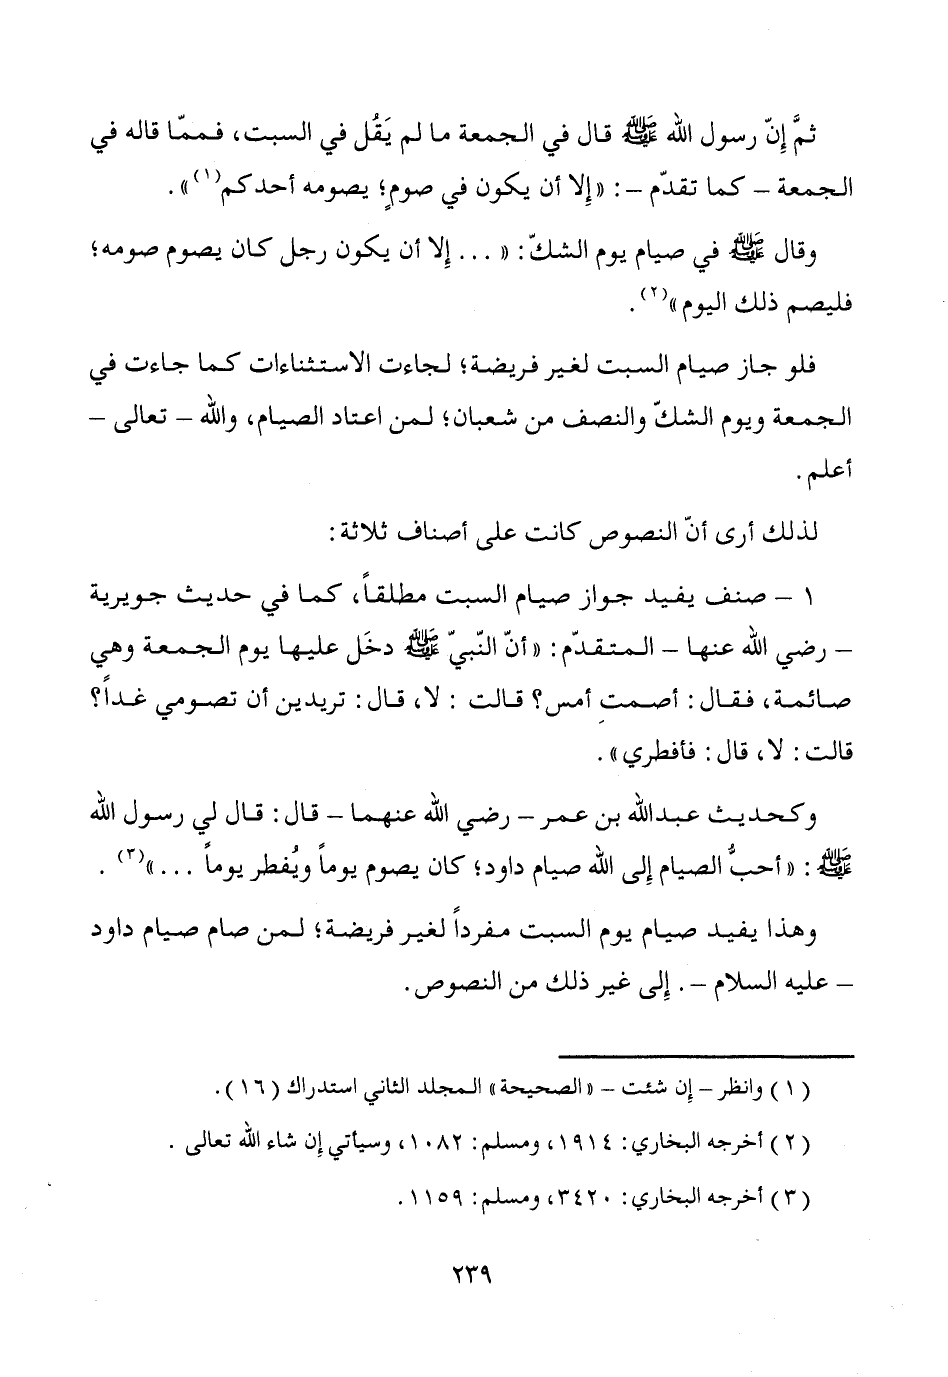 ثمَّ إِنّ رسول الله ﷺ قال في الجمعة ما لم يَقُل في السبت، فممّا قاله في
الجمعة - كما تقدّم -: «إِلا أن يكون في صومٍ؛ يصومه أحدكم(١)».
وقال ﷺ في صيام يوم الشكّ: «... إِلا أن يكون رجل كان يصوم صومه؛
فليصم ذلك اليوم»(٢).
فلو جاز صيام السبت لغير فريضة؛ لجاءت الاستثناءات كما جاءت في
الجمعة ويوم الشكّ والنصف من شعبان؛ لمن اعتاد الصيام، والله - تعالى -
أعلم.
لذلك أرى أنّ النصوص كانت على أصناف ثلاثة:
١ - صنف يفيد جواز صيام السبت مطلقاً، كما في حديث جويرية
- رضي الله عنها - المتقدّم: «أنّ النّبيّ ﷺ دخَل عليها يوم الجمعة وهي
صائمة، فقال: أصمتِ أمس؟ قالت: لا، قال: تريدين أن تصومي غداً؟
قالت: لا، قال: فأفطري».
وكحديث عبدالله بن عمر - رضي الله عنهما - قال: قال لي رسول الله
ﷺ: «أحبُّ الصيام إِلى الله صيام داود؛ كان يصوم يوماً ويُفطر يوماً ...»(٣).
وهذا يفيد صيام يوم السبت مفرداً لغير فريضة؛ لمن صام صيام داود
- عليه السلام -. إِلى غير ذلك من النصوص.
(١) وانظر - إِن شئت - «الصحيحة» المجلد الثاني استدراك (١٦).
(٢) أخرجه البخاري: ١٩١٤، ومسلم: ١٠٨٢، وسيأتي إِن شاء الله تعالى.
(٣) أخرجه البخاري: ٣٤٢٠، ومسلم: ١١٥٩.
٢٣٩